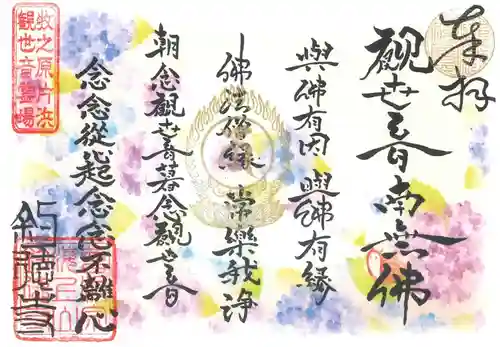 奉拝
觀世音南無佛
與佛有因與佛有縁
佛法僧縁常樂我浄
朝念觀世音暮念觀世音
念念從心起念念不離心
牧之原片浜
観世音霊場